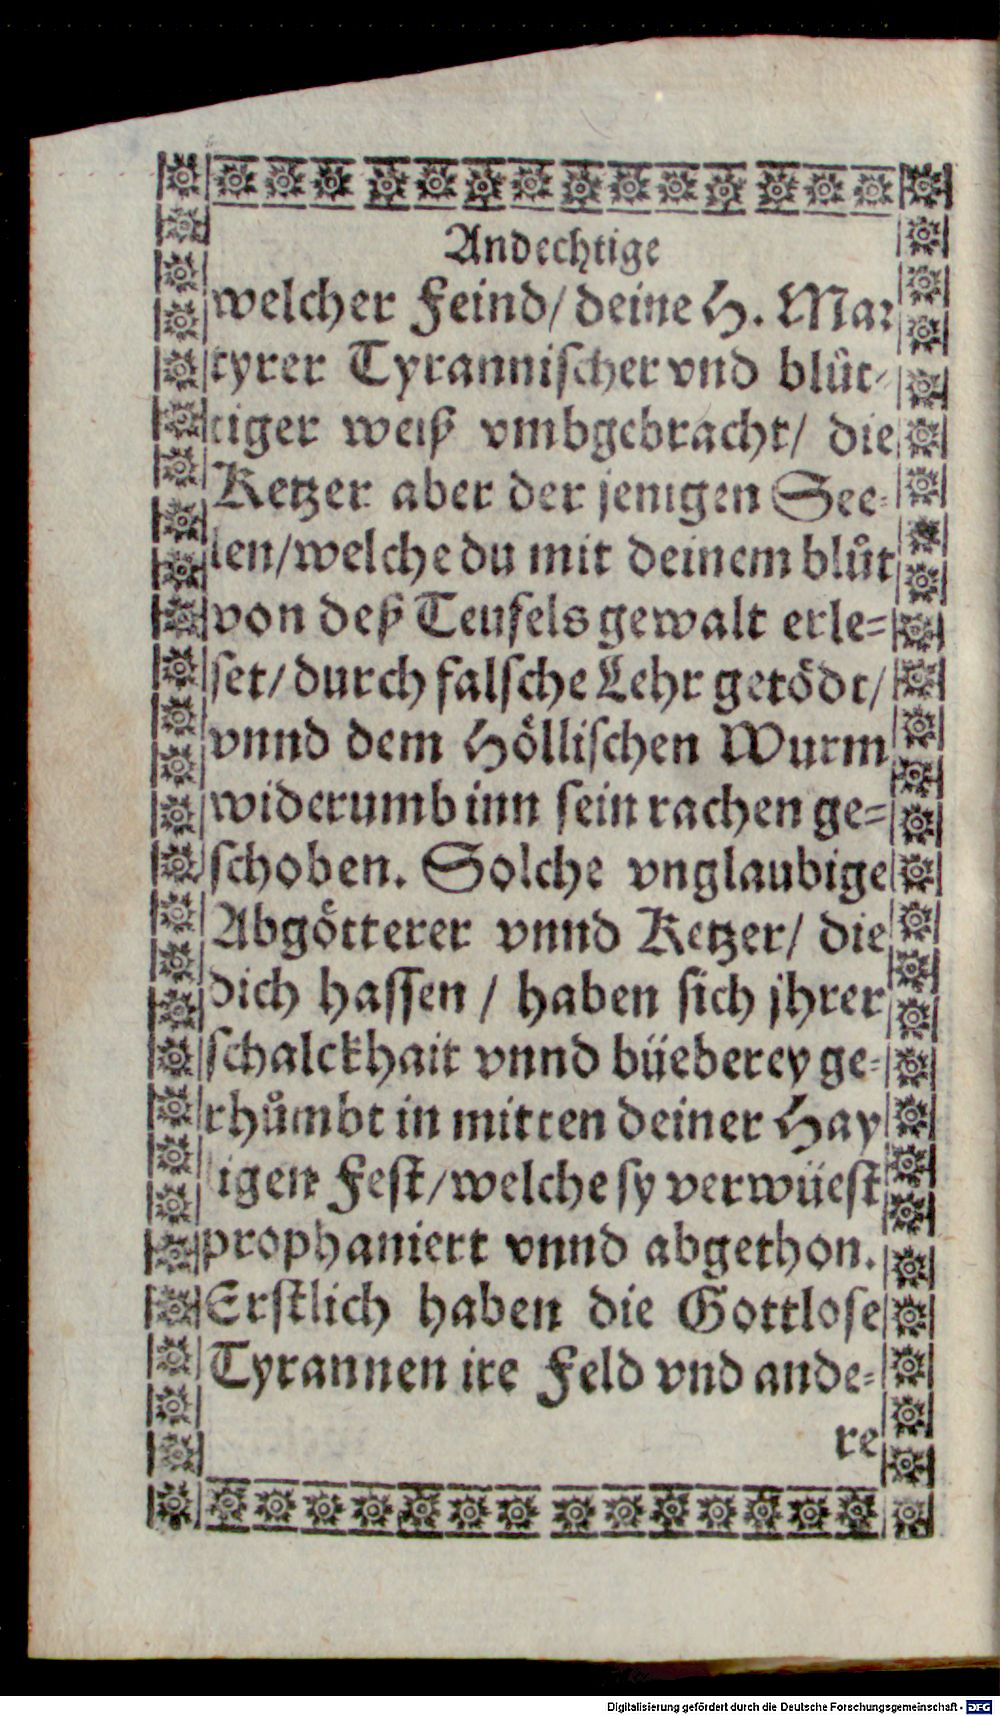 Andechtige
welcher Feind/ deine H. Mar
tyrer Tyrannischer vnd blůt-
tiger weiß vmbgebracht/ die
Ketzer aber der jenigen See-
len/welche du mit deinem blůt
von deß Teufels gewalt erle-
set/ durch falsche Lehr getödt/
vnnd dem Höllischen Wurm
widerumb inn sein rachen ge-
schoben. Solche vnglaubige
Abgötterer vnnd Ketzer/ die
dich hassen / haben sich jhrer
schalckhait vnnd büeberey ge-
rhůmbt in mitten deiner Hay
ligen Fest/welche sy verwüest
prophaniert vnnd abgethon.
Erstlich haben die Gottlose
Tyrannen ire Feld vnd ande-
re
Digitalisierung gefördert durch die Deutsche Forschungsgemeinschaft - DFG